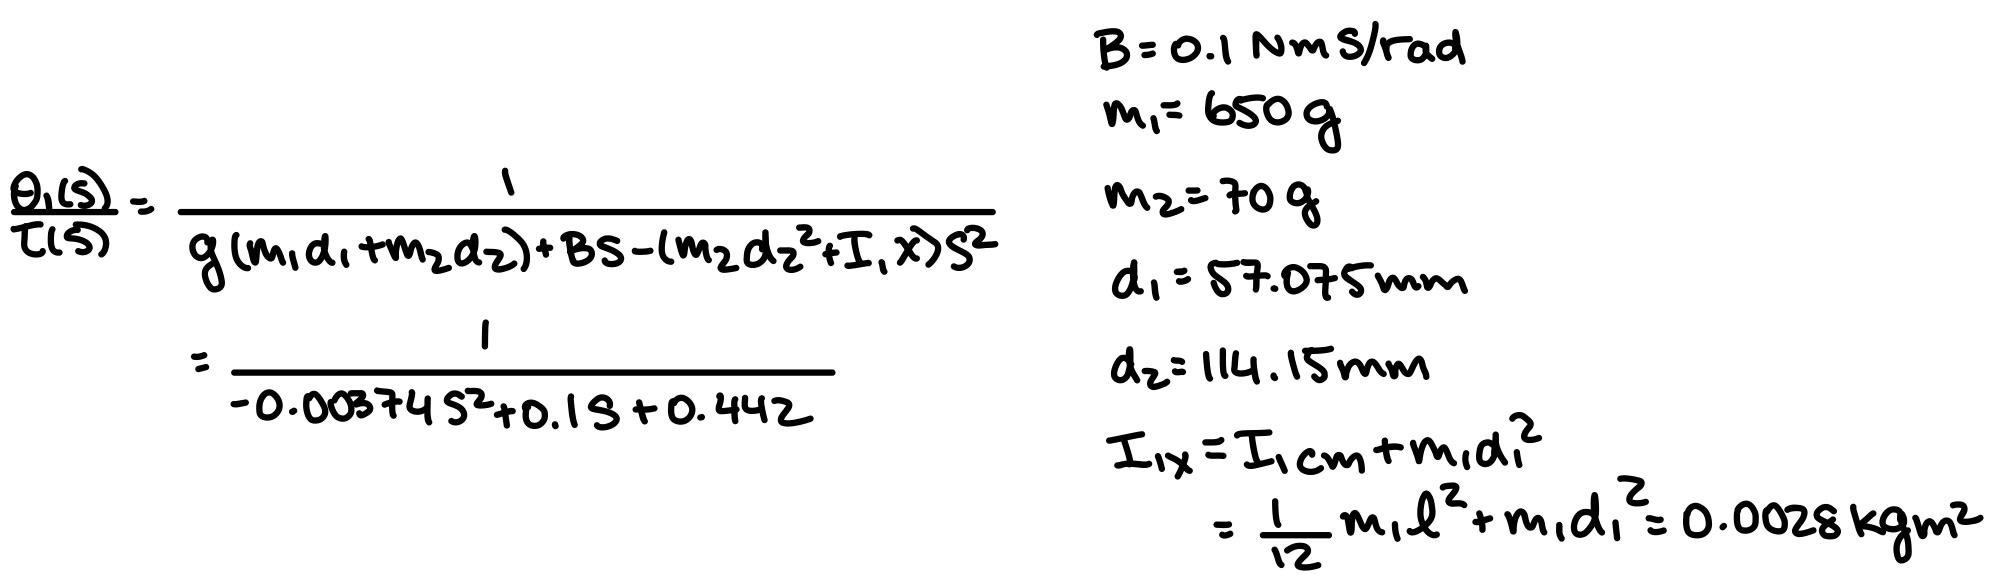 θ₁(s)/τ(s) = 1/(g(m₁d₁+m₂d₂)+Bs-(m₂d₂²+I₁x)s²)
= 1/(-0.00374s²+0.1s+0.442)
B = 0.1 Nms/rad
m₁ = 650 g
m₂ = 70 g
d₁ = 57.075mm
d₂ = 114.15mm
I₁ₓ = I₁cm+m₁d₁²
= 1/12 m₁l²+m₁d₁² = 0.0028 kgm²